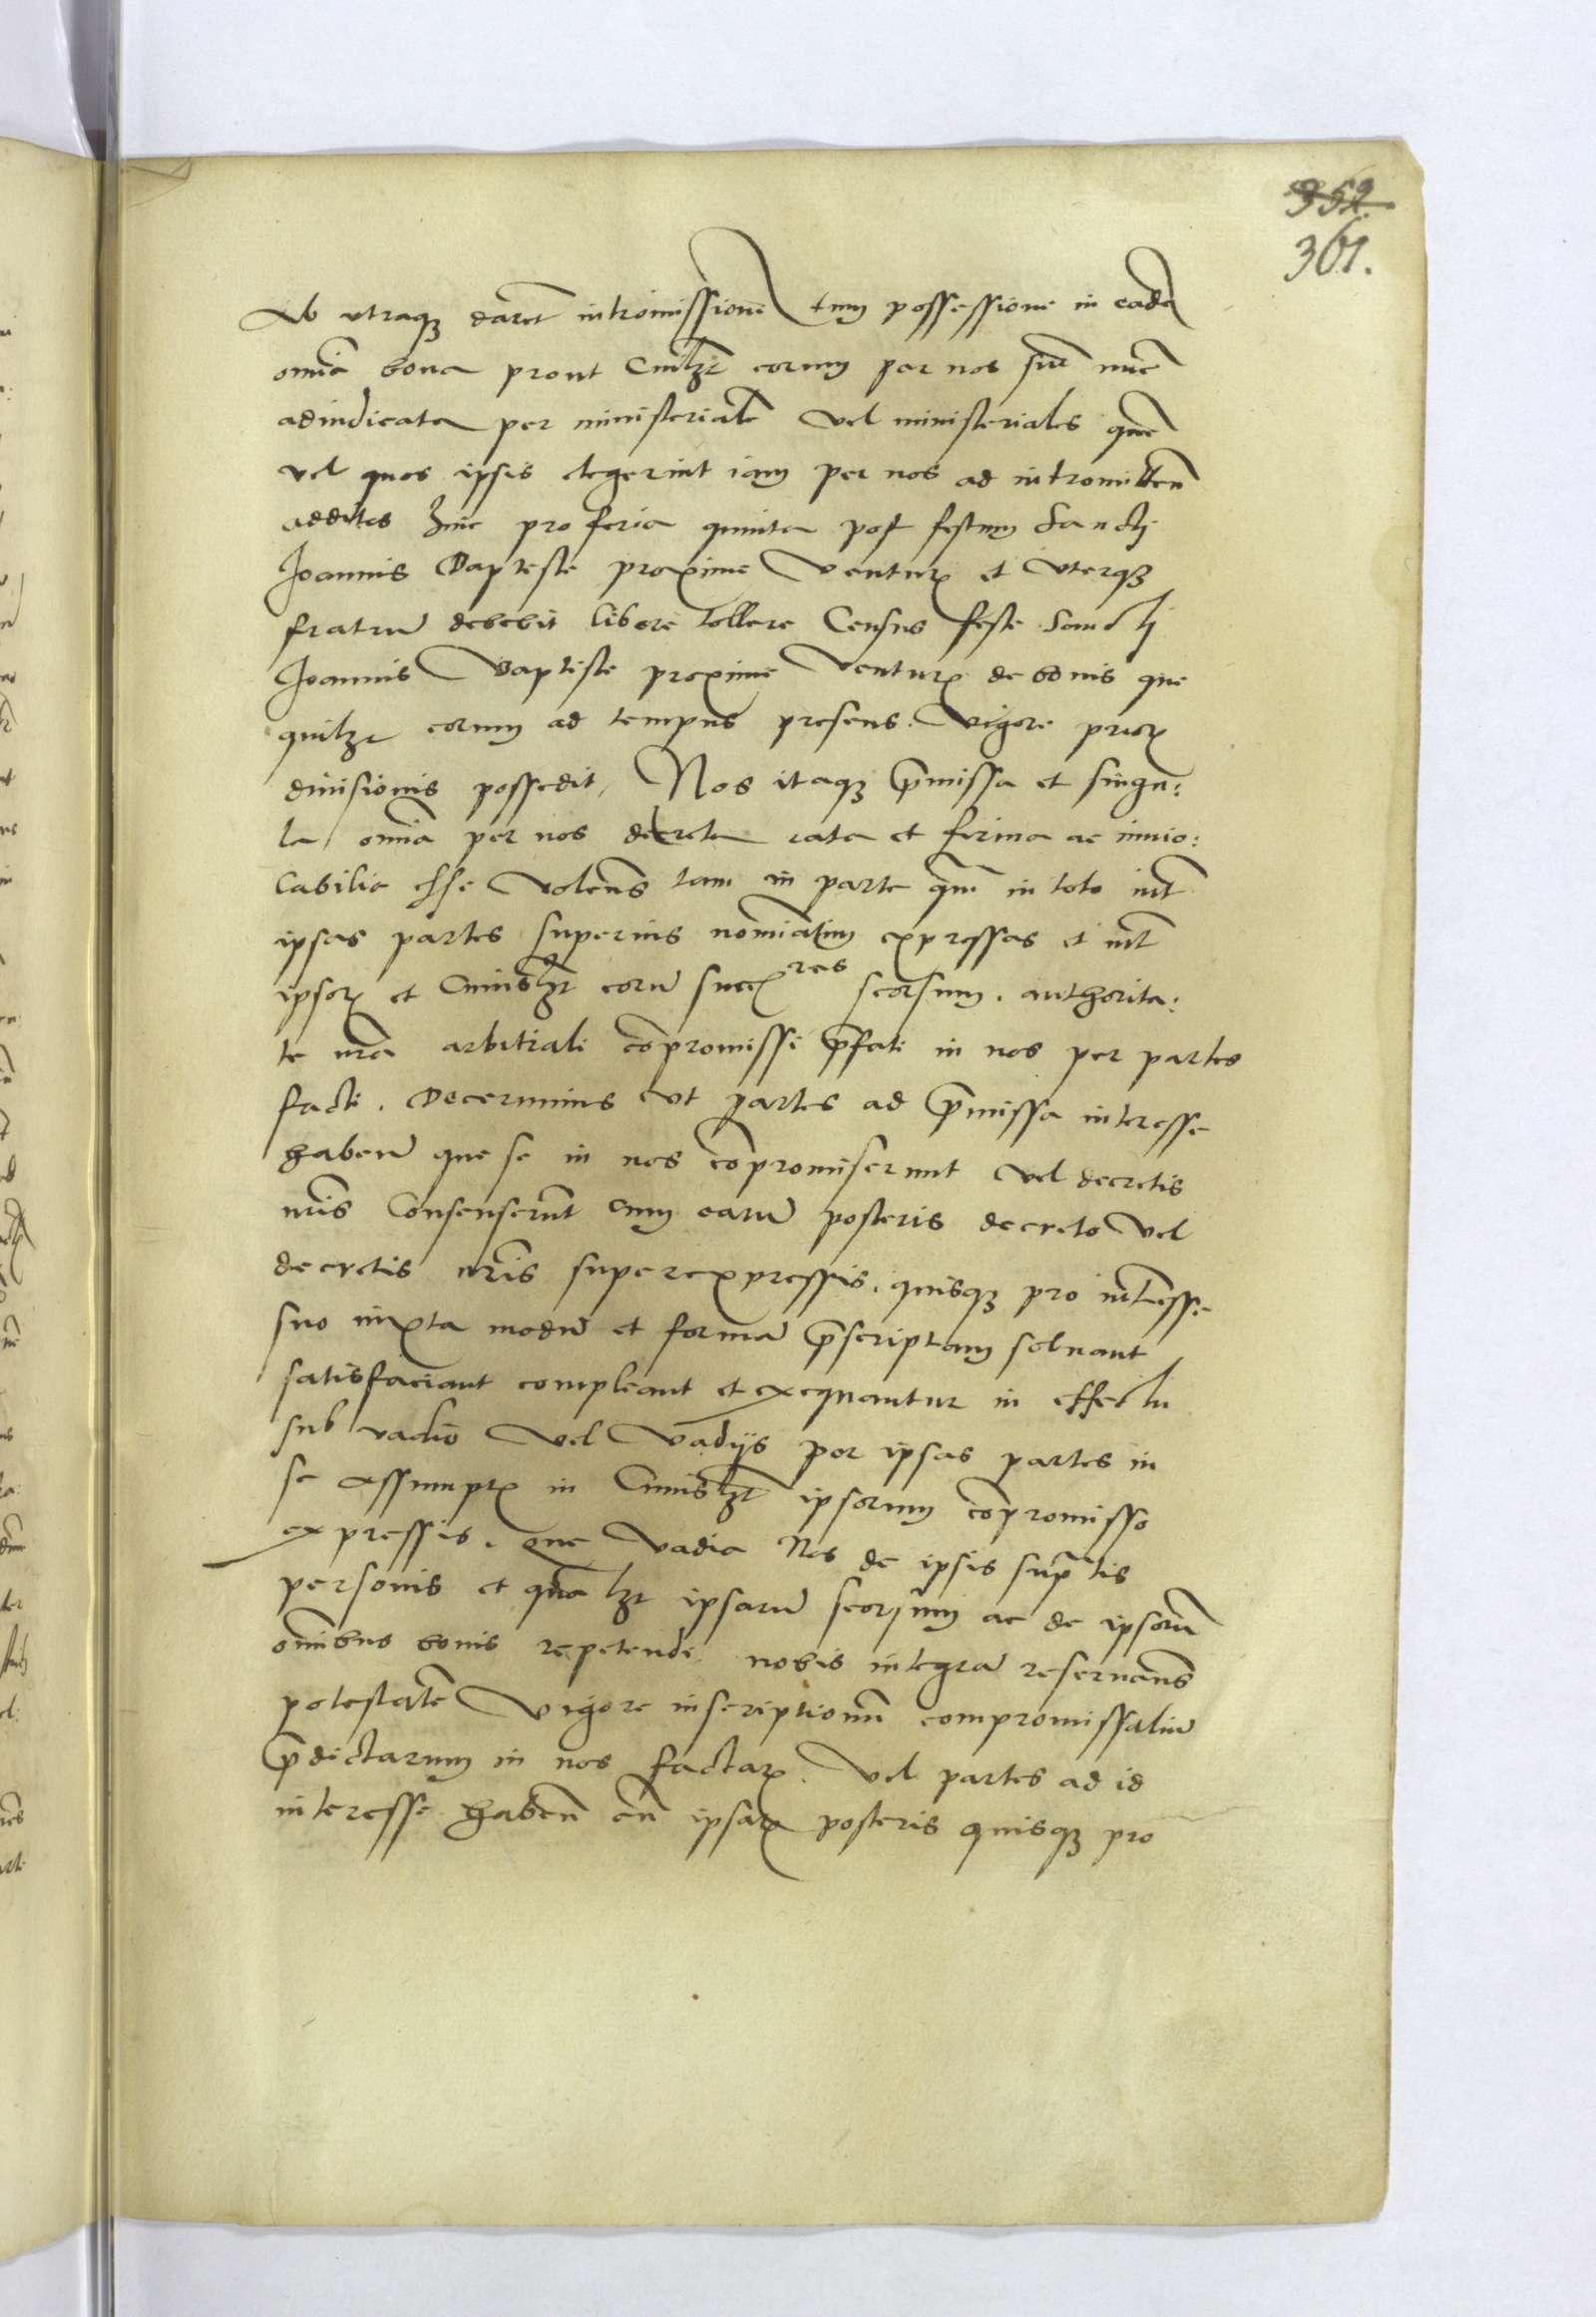 352
361.
Ab utraqȝ daret intromissionē cum possessione in eadē
omīa bona prout Cuilȝt eorum per nos sūt nūc
adiudicata per ministerialē vel ministeriales quē
vel quos ipsis elegerint iam per nos ad intromittēn
additos hinc pro feria quinta post festum Sancti
Joannis Baptiste proxime ventur et uterqȝ
fratrū debebit libere tollere Census feste Sancti
Joannis Baptiste proxime ventur de bonis que
quilȝt eorum ad tempus presens vigore prior
diuisionis possedit, Nos itaqȝ p̄missa et singu:
la omīa per nos decreta rata et firma ac inuio:
labilia esse volens̄ tam in parte quā in toto int̄
ipsas partes superius nomīatim expressas et int̄
ipsor et Cuiuslȝt eorū succres seorsum . authorita:
te nr̄a arbitrali cōpromissi p̄fati in nos per partes
facti . Decernimus ut partes ad p̄missa interesse
habenū que se in nos cōpromiserunt vel decretis
nr̄is Consenserūt cum earū posteris decreto vel
decretis nr̄is superexpressis. quisqȝ pro int̄esse
suo iuxta modū et formā p̄scriptam soluant
satisfaciant compleant et exequantur in effectu
sub vadio vel vadijs per ipsas partes in
se assumpt in Cuiuslȝt ipsorum cōpromisso
expressis . que vadia Nos de ipsis supr̄tis
personis et qualȝt ipsarū seorsum ac de ipsorū
omībus bonis repetendi nobis integrā reseruans̄
potestatē vigore inscriptionū compromissaliū
p̄dictarum in nos factar . vel partes ad id
interesse habēn cū ipsar posteris quisqȝ pro